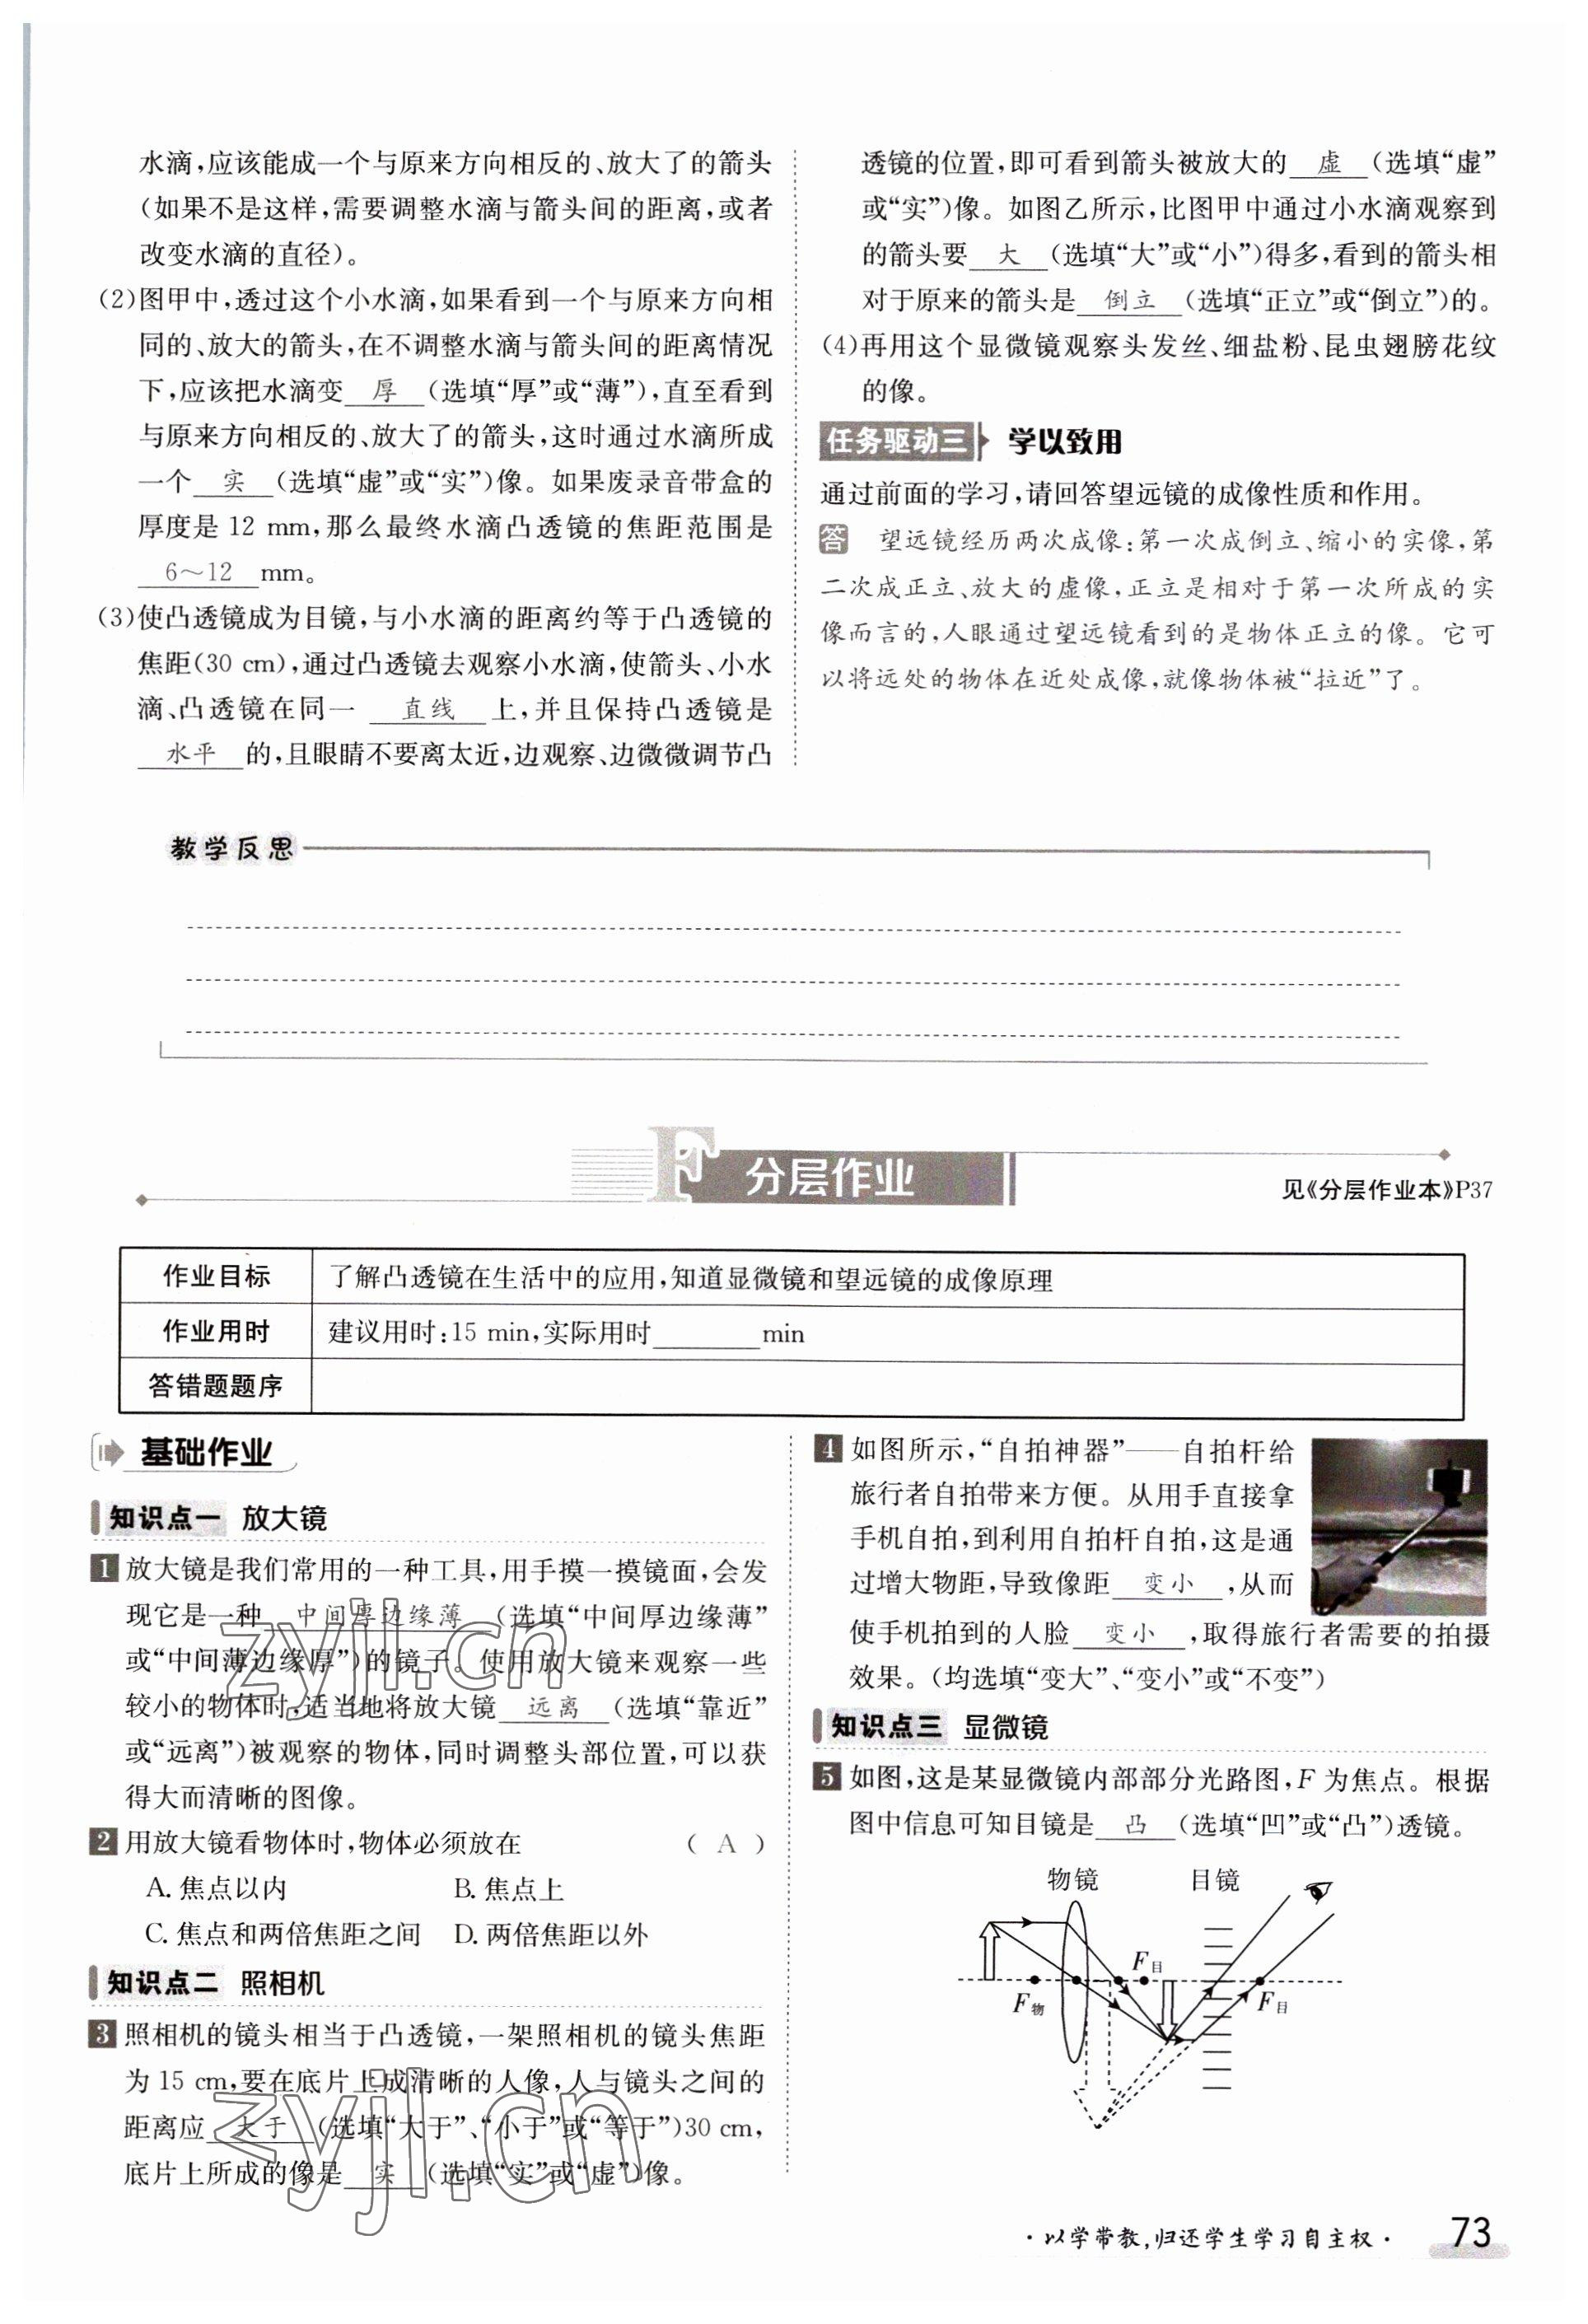 水滴,应该能成一个与原来方向相反的、放大了的箭头
(如果不是这样,需要调整水滴与箭头间的距离,或者
改变水滴的直径)。
(2)图甲中,透过这个小水滴,如果看到一个与原来方向相
同的、放大的箭头,在不调整水滴与箭头间的距离情况
下,应该把水滴变 厚 (选填“厚”或“薄”),直至看到
与原来方向相反的、放大了的箭头,这时通过水滴所成
一个 实 (选填“虚”或“实”)像。如果废录音带盒的
厚度是 12 mm,那么最终水滴凸透镜的焦距范围是
6～12 mm。
(3)使凸透镜成为目镜,与小水滴的距离约等于凸透镜的
焦距(30 cm),通过凸透镜去观察小水滴,使箭头、小水
滴、凸透镜在同一 直线 上,并且保持凸透镜是
水平 的,且眼睛不要离太近,边观察、边微微调节凸
透镜的位置,即可看到箭头被放大的 虚 (选填“虚”
或“实”)像。如图乙所示,比图甲中通过小水滴观察到
的箭头要 大 (选填“大”或“小”)得多,看到的箭头相
对于原来的箭头是 倒立 (选填“正立”或“倒立”)的。
(4)再用这个显微镜观察头发丝、细盐粉、昆虫翅膀花纹
的像。
任务驱动三 学以致用
通过前面的学习,请回答望远镜的成像性质和作用。
答 望远镜经历两次成像:第一次成倒立、缩小的实像,第
二次成正立、放大的虚像,正立是相对于第一次所成的实
像而言的,人眼通过望远镜看到的是物体正立的像。它可
以将远处的物体在近处成像,就像物体被“拉近”了。
教学反思
F 分层作业
见《分层作业本》P37
作业目标 了解凸透镜在生活中的应用,知道显微镜和望远镜的成像原理
作业用时 建议用时:15 min,实际用时________min
答错题题序
基础作业
知识点一 放大镜
1 放大镜是我们常用的一种工具,用手摸一摸镜面,会发
现它是一种 中间厚边缘薄 (选填“中间厚边缘薄”
或“中间薄边缘厚”)的镜子。使用放大镜来观察一些
较小的物体时,适当地将放大镜 远离 (选填“靠近”
或“远离”)被观察的物体,同时调整头部位置,可以获
得大而清晰的图像。
2 用放大镜看物体时,物体必须放在 ( A )
A. 焦点以内 B. 焦点上
C. 焦点和两倍焦距之间 D. 两倍焦距以外
知识点二 照相机
3 照相机的镜头相当于凸透镜,一架照相机的镜头焦距
为 15 cm,要在底片上成清晰的人像,人与镜头之间的
距离应 大于 (选填“大于”、“小于”或“等于”)30 cm,
底片上所成的像是 实 (选填“实”或“虚”)像。
4 如图所示,“自拍神器”——自拍杆给
旅行者自拍带来方便。从用手直接拿
手机自拍,到利用自拍杆自拍,这是通
过增大物距,导致像距 变小 ,从而
使手机拍到的人脸 变小 ,取得旅行者需要的拍摄
效果。(均选填“变大”、“变小”或“不变”)
知识点三 显微镜
5 如图,这是某显微镜内部部分光路图,F 为焦点。根据
图中信息可知目镜是 凸 (选填“凹”或“凸”)透镜。
物镜 目镜
F目
F物 F目
zyjl.cn
zyjl.cn
·以学带教,归还学生学习自主权· 73